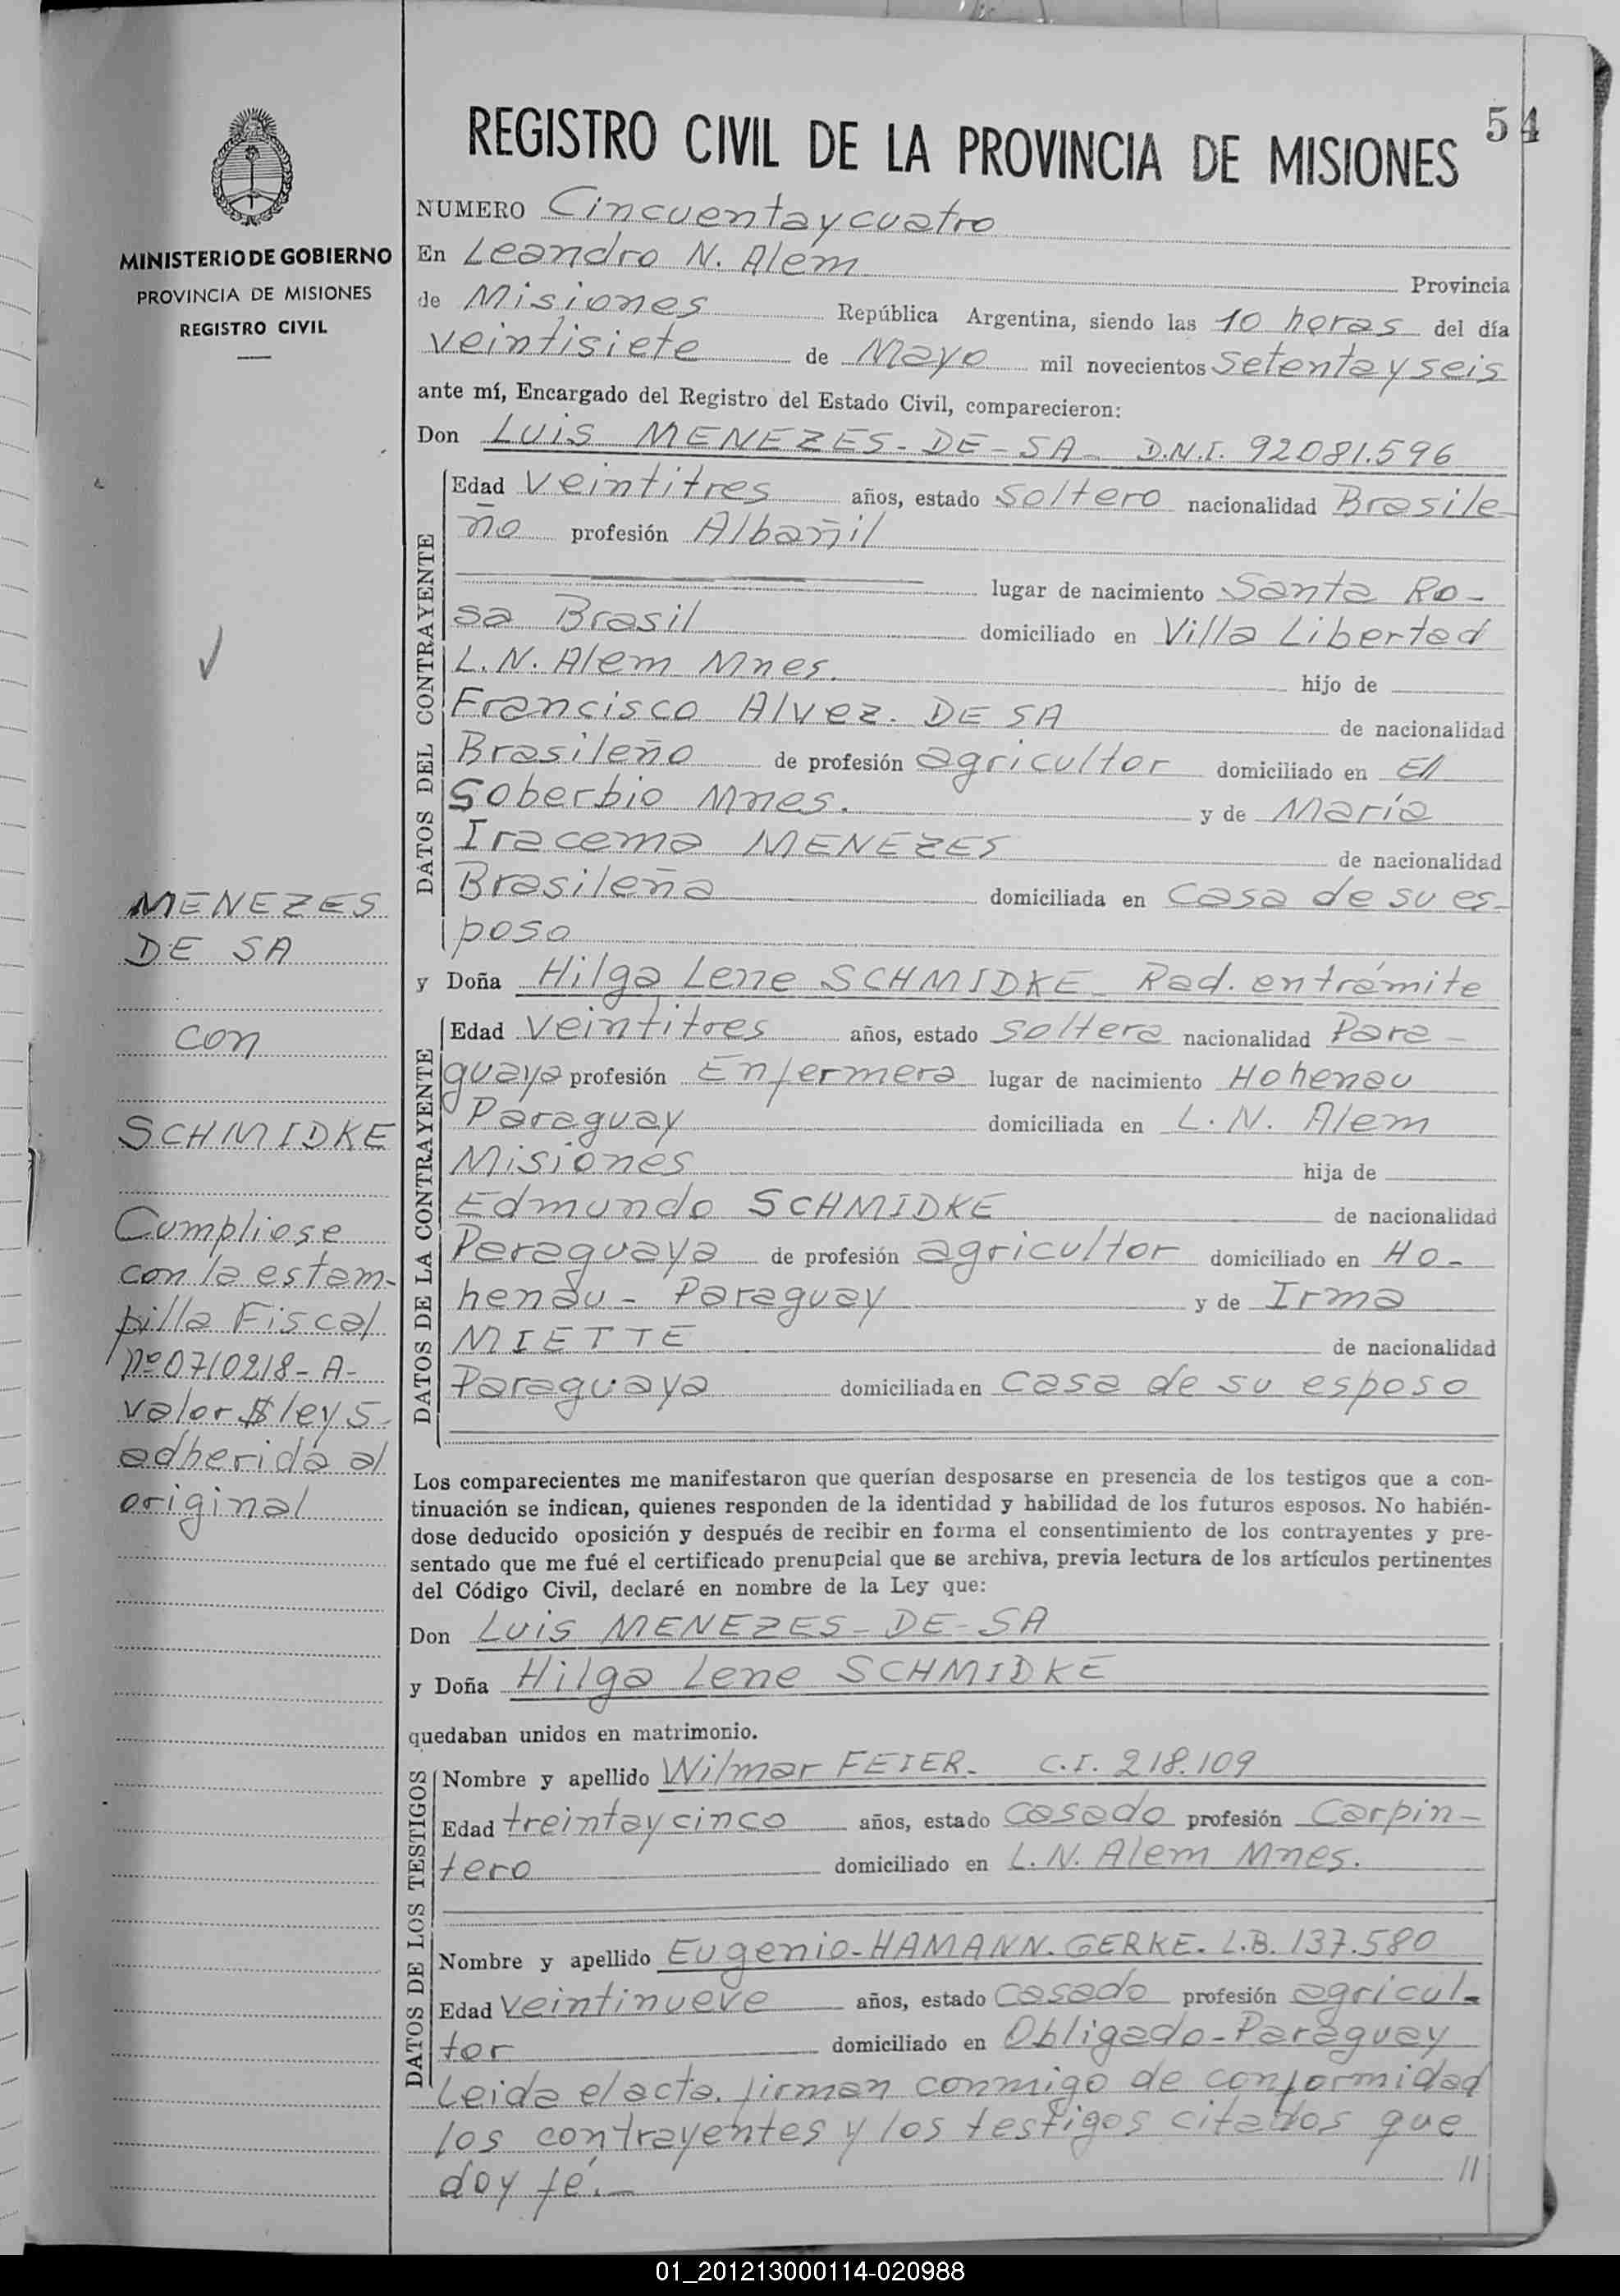 54
REGISTRO CIVIL DE LA PROVINCIA DE MISIONES
MINISTERIO DE GOBIERNO
PROVINCIA DE MISIONES
REGISTRO CIVIL
NUMERO Cincuenta y cuatro
En Leandro N. Alem Provincia
de Misiones República Argentina, siendo las 10 horas del día
veintisiete de Mayo mil novecientos setenta y seis
ante mí, Encargado del Registro del Estado Civil, comparecieron:
Don LUIS MENEZES-DE-SA- D.N.I. 92081.596
DATOS DEL CONTRAYENTE
Edad veintitres años, estado soltero nacionalidad Brasile-
ño profesión Albañil
lugar de nacimiento Santa Ro-
sa Brasil domiciliado en Villa Libertad
L.N. Alem Mnes. hijo de
Francisco Alvez. DE SA de nacionalidad
Brasileño de profesión agricultor domiciliado en El
Soberbio Mnes. y de María
Iracema MENEZES de nacionalidad
Brasileña domiciliada en casa de su es-
poso
y Doña Hilga Lene SCHMIDKE- Rad. en trámite
DATOS DE LA CONTRAYENTE
Edad veintitres años, estado soltera nacionalidad Para-
guaya profesión Enfermera lugar de nacimiento Hohenau
Paraguay domiciliada en L. N. Alem
Misiones hija de
Edmundo SCHMIDKE de nacionalidad
Paraguaya de profesión agricultor domiciliado en HO-
henau - Paraguay y de Irma
MIETTE de nacionalidad
Paraguaya domiciliada en casa de su esposo
MENEZES
DE SA
con
SCHMIDKE
Cumpliose
con la estam-
pilla Fiscal
nº 0710218-A-
valor $ ley 5-
adherida al
original
Los comparecientes me manifestaron que querían desposarse en presencia de los testigos que a con-
tinuación se indican, quienes responden de la identidad y habilidad de los futuros esposos. No habién-
dose deducido oposición y después de recibir en forma el consentimiento de los contrayentes y pre-
sentado que me fué el certificado prenupcial que se archiva, previa lectura de los artículos pertinentes
del Código Civil, declaré en nombre de la Ley que:
Don Luis MENEZES-DE-SA
y Doña Hilga Lene SCHMIDKE
quedaban unidos en matrimonio.
DATOS DE LOS TESTIGOS
Nombre y apellido Wilmar FEIER- C.I. 218.109
Edad treinta y cinco años, estado casado profesión Carpin-
tero domiciliado en L.N. Alem Mnes.
Nombre y apellido Eugenio-HAMANN-GERKE. L.B. 137.580
Edad veintinueve años, estado casado profesión agricul-
tor domiciliado en Obligado-Paraguay
Leida el acta. firman conmigo de conformidad
los contrayentes y los testigos citados que
doy fé.- //
01_201213000114-020988